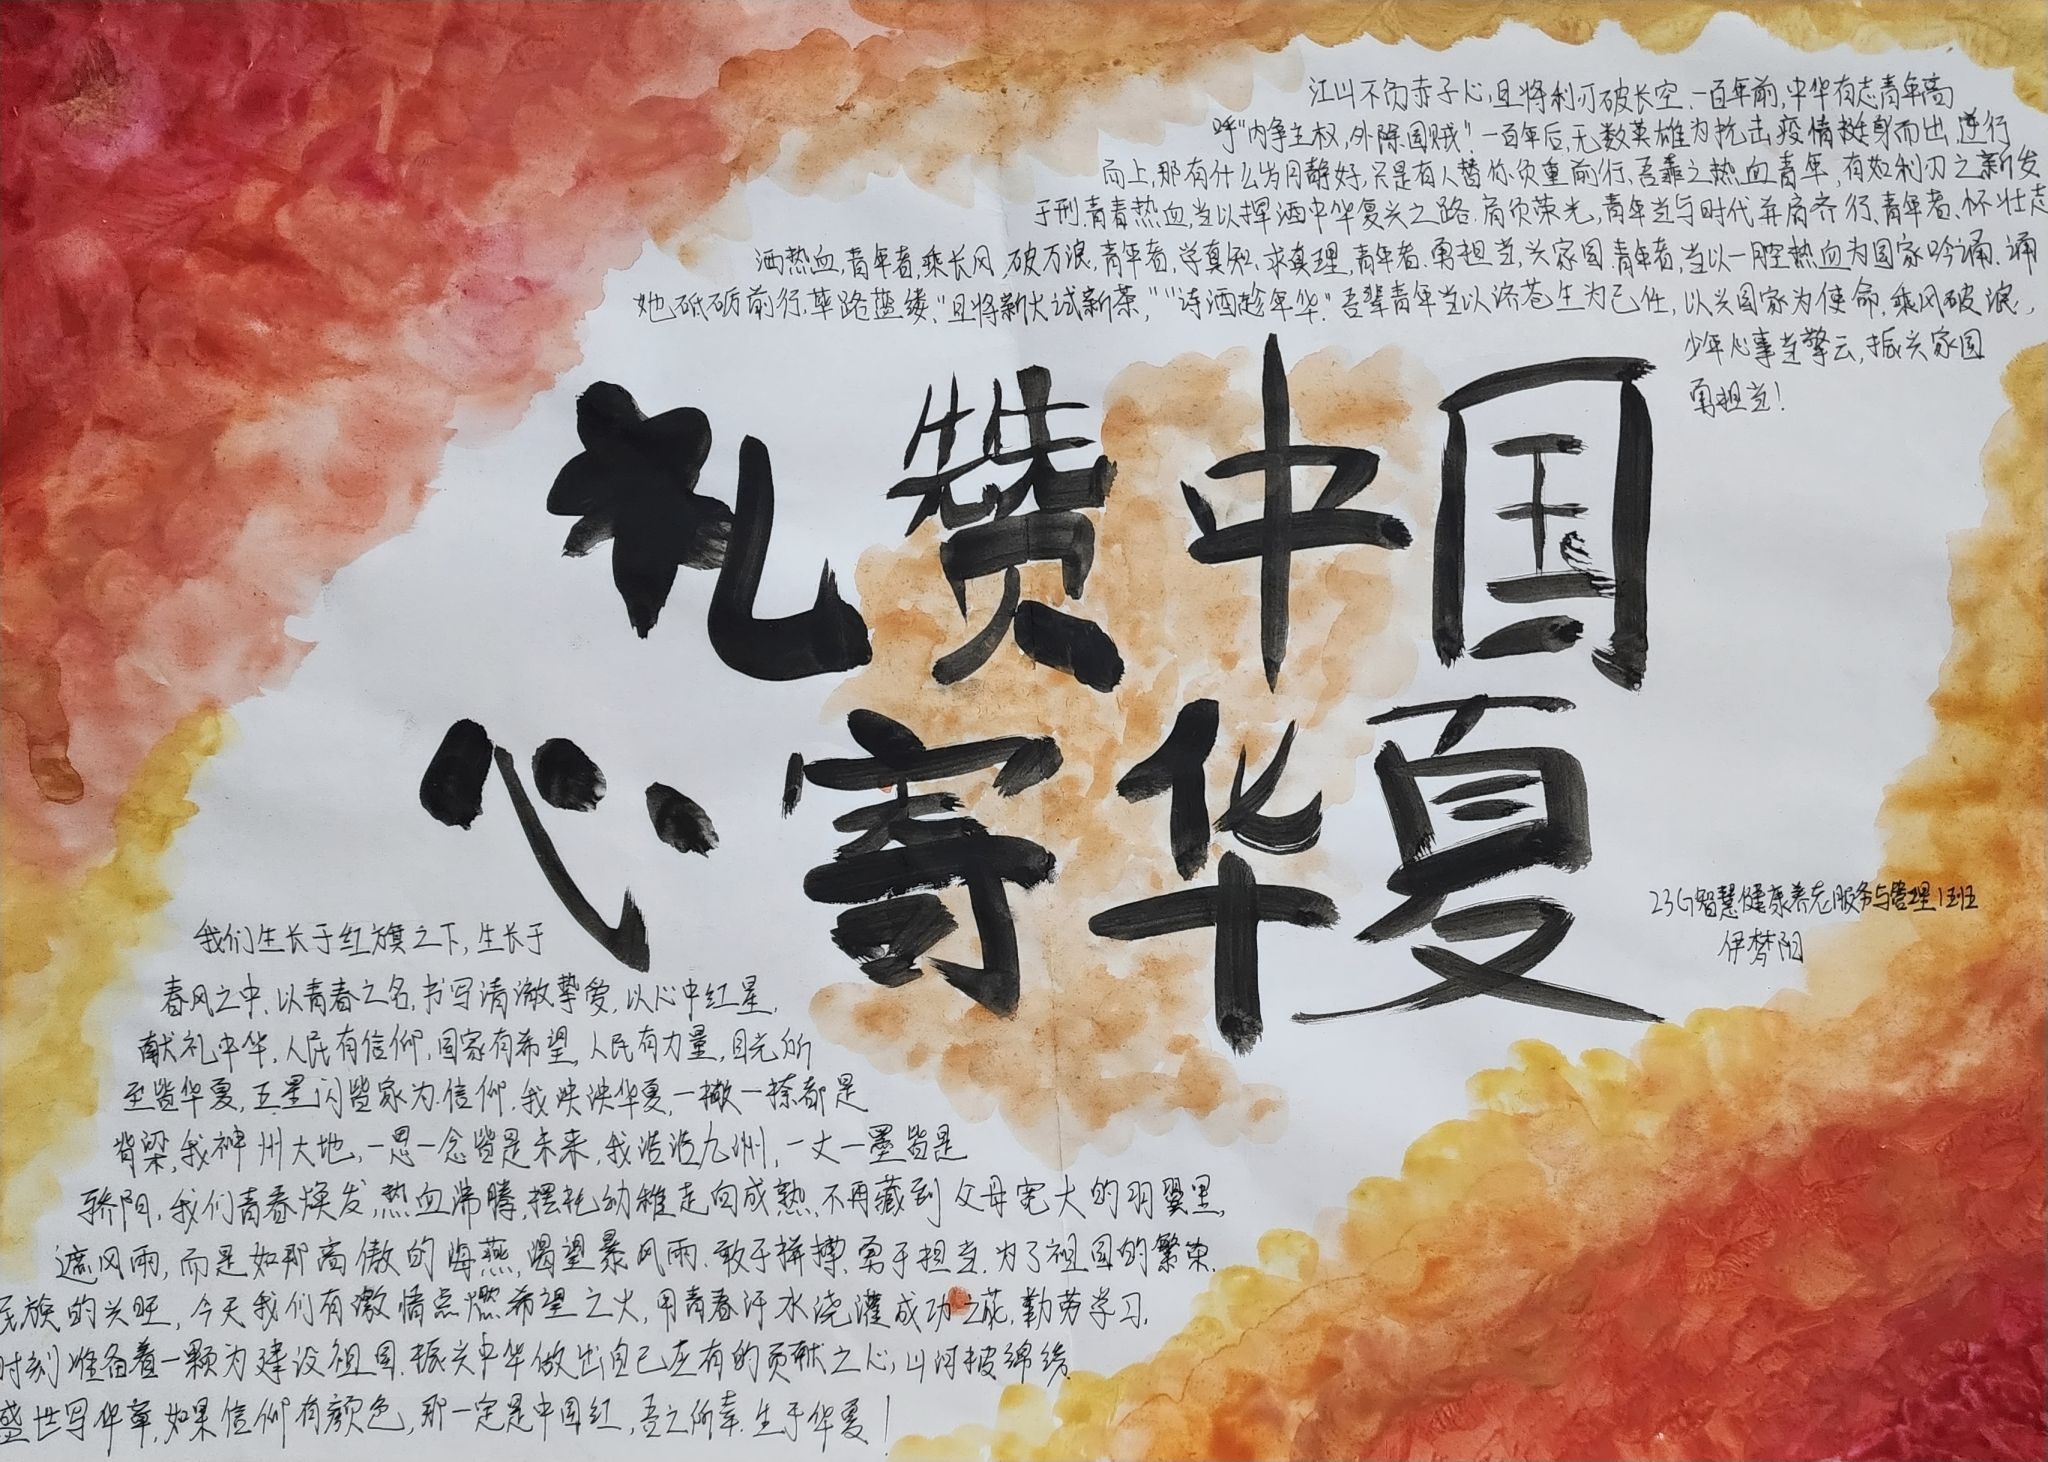 江山不负赤子心,且将利刃破长空.一百年前,中华有志青年高
呼"内争主权,外除国贼"!一百年后,无数英雄为抗击疫情挺身而出,逆行
而上,那有什么岁月静好,只是有人替你负重前行、吾辈之热血青年,有如利刃之新发
于刑.青春热血,当以挥洒中华复兴之路.肩负荣光,青年当与时代并肩齐行.青年者、怀壮志
洒热血,青年者,乘长风 破万浪,青年者,学真知、求真理,青年者.勇担当,兴家国.青年者,当以一腔热血为国家吟诵.诵
她砥砺前行,筚路蓝缕、"且将新火试新茶,""诗酒趁年华."吾辈青年当以济苍生为己任,以兴国家为使命.乘风破浪,
少年心事当擎云,振兴家国
勇担当!
礼赞中国
心寄华夏
23G智慧健康养老服务与管理1班
伊梦阳
我们生长于红旗之下,生长于
春风之中,以青春之名,书写清澈挚爱,以心中红星,
献礼中华,人民有信仰,国家有希望,人民有力量,目光所
至皆华夏,五星闪皆家为信仰.我泱泱华夏,一撇一捺都是
脊梁,我神州大地,一思一念皆是未来,我浩浩九州,一丈一墨皆是
骄阳,我们青春焕发,热血沸腾,摆托幼稚走向成熟、不再藏到父母宽大的羽翼里,
遮风雨,而是如那高傲的海燕,渴望暴风雨.敢于拼搏、勇于担当.为了祖国的繁荣.
民族的兴旺,今天我们有激情点燃希望之火,用青春汗水浇灌成功之花,勤劳学习,
时刻准备着一颗为建设祖国.振兴中华做出自己应有的贡献之心,山河披锦绣
盛世写华章,如果信仰有颜色,那一定是中国红,吾之所幸.生于华夏!